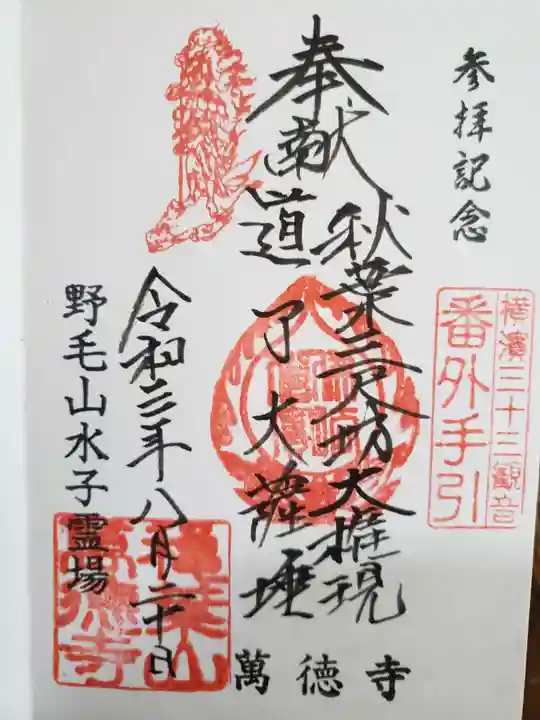 参拝記念
横濱三十三観音
番外手引
奉献
秋葉三尺坊大権現
道了大薩埵
萬徳寺
令和二年八月二十日
野毛山水子霊場